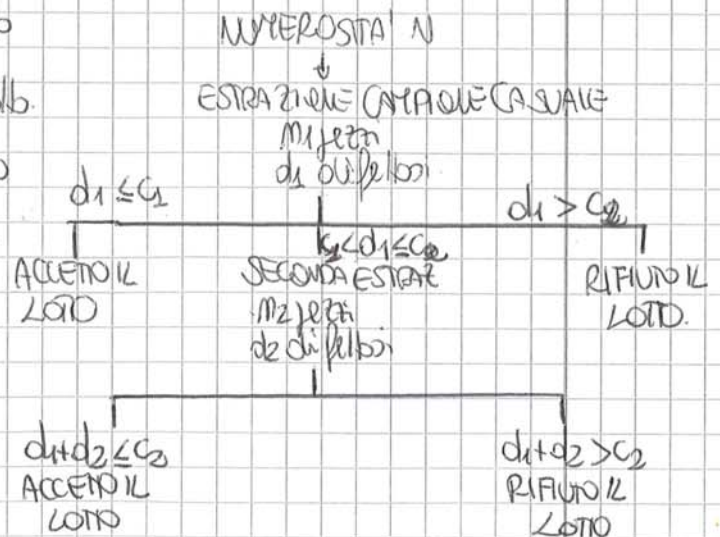 NUMEROSITA' N
↓
ESTRAZIONE CAMPIONE CASUALE
n1 pezzi
d1 difettosi
d1 ≤ c1
d1 > c2
c1 < d1 ≤ c2
ACCETTO IL
LOTTO
SECONDA ESTRAZ
n2 pezzi
d2 difettosi
RIFIUTO IL
LOTTO.
d1+d2 ≤ c2
ACCETTO IL
LOTTO
d1+d2 > c2
RIFIUTO IL
LOTTO